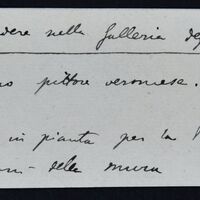 dere nella Galleria de
no pittore veronese.
in pianta per la V
delle mura